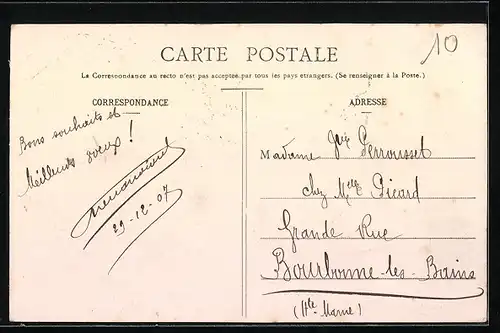 CARTE POSTALE
10
La Correspondance au recto n'est pas acceptée par tous les pays étrangers. (Se renseigner à la Poste.)
CORRESPONDANCE
Bons souhaits et
Meilleurs voeux !
29-12-07
ADRESSE
Madame Perrousset
chez Melle Picard
Grande Rue
Bourbonne-les-Bains
(Hte-Marne)